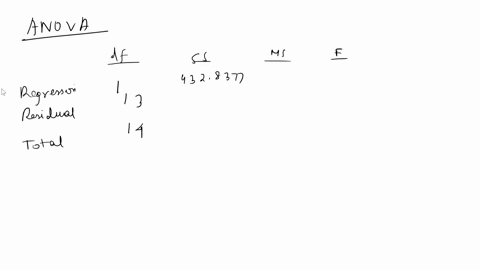 ANOVA
df SS MS F
Regression 1 432.8377
Residual 13
Total 14